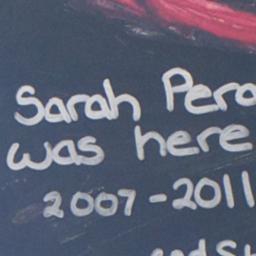 Sarah Pera
was here
2007-2011